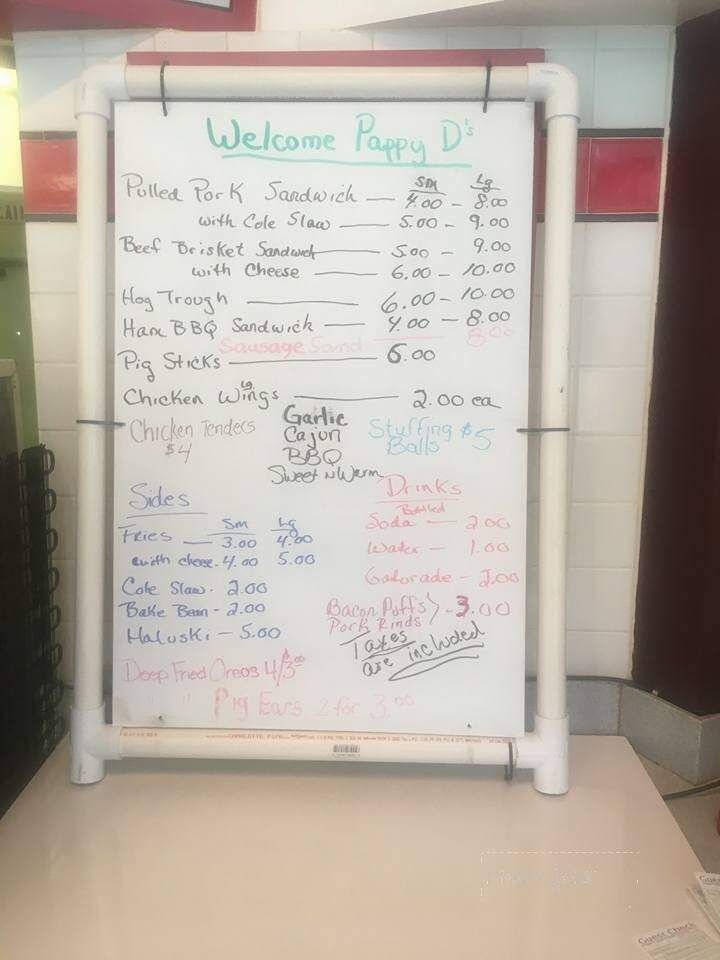 Welcome Pappy D's
Sm Lg
Pulled Pork Sandwich — 4.00 - 8.00
with Cole Slaw — 5.00 - 9.00
Beef Brisket Sandwich — 5.00 - 9.00
with Cheese — 6.00 - 10.00
Hog Trough — 6.00 - 10.00
Ham BBQ Sandwich — 4.00 - 8.00
Sausage Sand 8.00
Pig Sticks — 6.00
Lg
Chicken Wings — 2.00 ea
Garlic
Cajun
BBQ
Sweet N Warm
Chicken Tenders
$4
Stuffing $5
Balls
Sides
Sm Lg
Fries — 3.00 4.00
with cheese. 4.00 5.00
Cole Slaw. 2.00
Bake Bean - 2.00
Haluski - 5.00
Drinks
Bottled
Soda — 2.00
Water — 1.00
Gatorade - 2.00
Bacon Puffs > - 3.00
Pork Rinds
Taxes
are included
Deep Fried Oreos 4/$3.00
Pig Ears 2 for 3.00
Guest Check